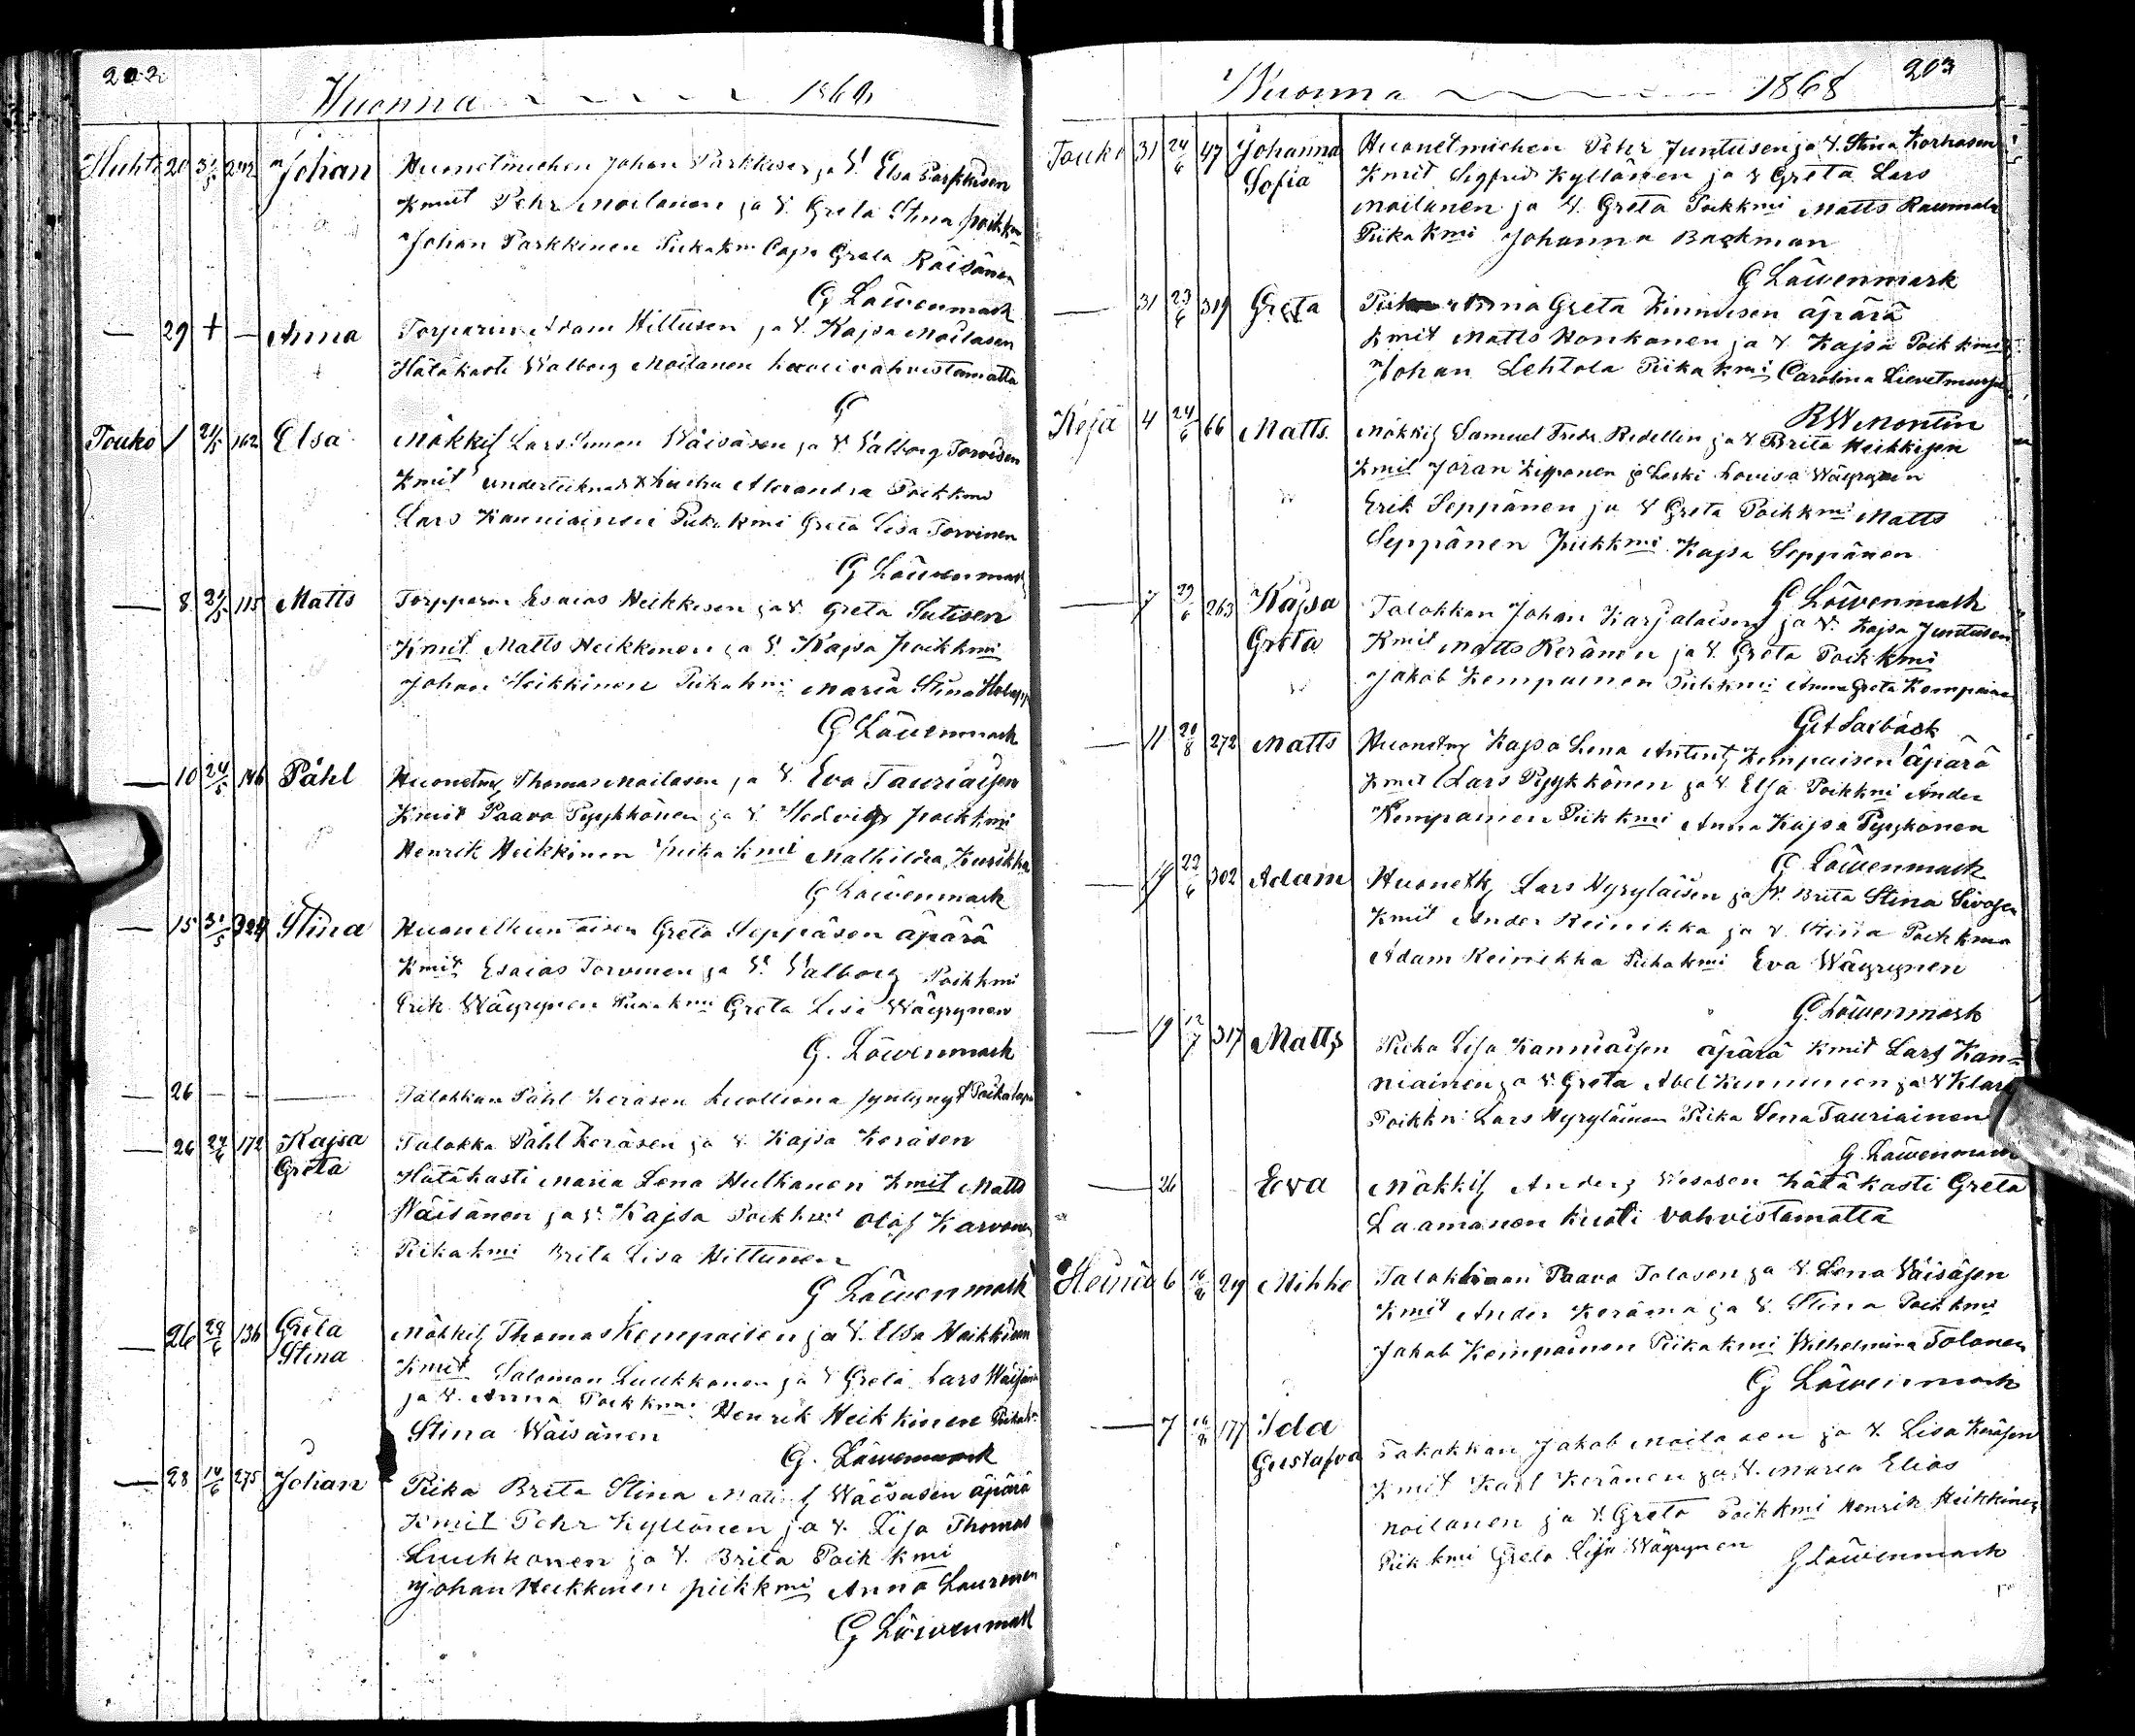 202
Wuonna 1868
Huhti 20 31/5 242 Johan Huonetmiehen Johan Parkkisen ja V. Elsa Parkkisen
Kmit Pehr Moilanen ja V. Greta Stina poikkm
Johan Parkkinen Piikakm Caps Greta Räisänen
G Löwenmark
— 29 + — Anna Torparin Adam Hiltusen ja V. Kajsa Moilasen
Hätäkasti Walborg Moilanen kuoli vahvistamatta
G
Touko 1 24/5 162 Elsa Mökkil Lars Simon Väisäsen ja V. Valborg Torvisen
Kmit undertecknad Alexandra Poikkmi
Lars Kanniainen Piikakmi Greta Lisa Torvinen
G Löwenmark
— 8 24/5 115 Matts Torpparin Esaias Heikkisen ja V. Greta Sutisen
Kmit Matts Heikkinen ja V. Kajsa poikkmi
Johan Heikkinen Piikakmi Maria Stina
G Löwenmark
— 10 24/5 146 Påhl Huonetm Thomas Moilasen ja V. Eva Tauriaisen
Kmit Paavo Pyykkönen ja V. Hedvig poikkmi
Henrik Heikkinen piikakmi Mathilda Kurikka
G Löwenmark
— 15 31/5 324 Stina Greta Seppäsen äpärä
Kmit Esaias Torvinen ja V. Valborg Poikkmi
Erik Wäyrynen Piikakmi Greta Lisa Wäyrynen
G. Löwenmark
— 26 — — — Talokkan Påhl Keräsen kuolleena syntynyt Poikalapsi
— 26 24/6 172 Kajsa Greta Talokka Påhl Keräsen ja V. Kajsa Keräsen
Hätäkasti Maria Lena Hulkanen Kmit Matts
Wäisänen ja V. Kajsa Poikkmi Olof Karvonen
Piikakmi Brita Lisa Hiltunen
G Löwenmark
— 26 24/6 136 Greta Stina Mökkil Thomas Kempaisen ja V. Elsa Heikkisen
Kmit Salomon Luukkonen ja V Greta Lars Wäisänen
ja V. Anna Poikkmi Henrik Heikkinen Piikakm
Stina Wäisänen
G. Löwenmark
— 28 14/6 275 Johan Piika Brita Stina Matint Wäisäsen äpärä
Kmit Pehr Kyllönen ja V. Lisa Thomas
Luukkonen ja V. Brita Poikkmi
Johan Heikkinen piikkmi Anna Laurinen
G Löwenmark
203
Wuonna 1868
Touko 31 24/6 47 Johanna Sofia Huonetmiehen Pehr Juntusen ja V. Stina Korhosen
Kmit Sigfrid Kyllönen ja V Greta Lars
Moilanen ja V. Greta Poikkmi Matts Raumala
Piikakmi Johanna Backman
G Löwenmark
— 31 23/6 319 Greta Piika Anna Greta Kinnusen äpärä
Kmit Matts Honkanen ja V Kajsa Poikkmi
Johan Lehtola Piikakmi Carolina
R W Montin
Kesä 4 24/6 66 Matts Mökkil Samuel Fredr. Redellin ja V Brita Heikkisen
Kmit Jöran Kipponen ja Leski Lovisa Wäyrynen
Erik Seppänen ja V Greta Poikkmi Matts
Seppänen Piikkmi Kajsa Seppänen
G Löwenmark
— 7 29/6 263 Kajsa Greta Talokkan Johan Karjalaisen ja V. Kajsa Juntusen
Kmit Matts Keränen ja V. Greta Poikkmi
Jakob Kempainen Piikkmi Anna Greta Kempainen
— 11 20/8 272 Matts Kajsa Lena Antint Kempaisen äpärä
Kmit Lars Pyykkönen ja V. Elsa Poikkmi Ander
Kempainen Piikkmi Anna Kajsa Pyykönen
G Löwenmark
— 14 22/6 302 Adam Lars Hyryläisen ja V. Brita Stina Sivosen
Kmit Ander Reinikka ja V. Stina Poikkma
Adam Reinikka Piikakmi Eva Wäyrynen
G. Löwenmark
— 19 12/7 317 Matts Piika Lisa Kanniaisen äpärä Kmit Lars Kan=
niainen ja V. Greta Abel Kinnunen ja V Klara
Poikkm Lars Hyryläinen Piika Lena Tauriainen
G. Löwenmark
— 26 Eva Mökkil Anders Kesosen hätäkasti Greta
Laamanen kuoli vahvistamatta
Heinä 6 16/8 29 Mikko Talokkaan Paavo Tolosen ja V. Lena Väisäsen
Kmit Ander Keränä ja V. Stina Poikkmi
Jakob Kempainen Piikakmi Wilhelmina Tolonen
G Löwenmark
— 7 16/8 177 Ida Gustafva Talokkan Jakob Moilasen ja V. Lisa Keräsen
Kmit Karl Keränen ja V. Maria Elias
Moilanen ja V. Greta Poikkmi Henrik Heikkinen
Piikkmi Greta Lisa Wäyrynen
G Löwenmark